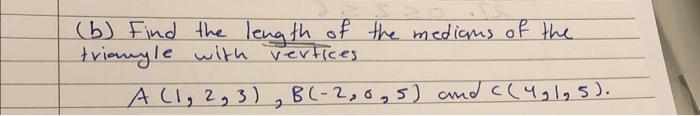 (b) Find the length of the medians of the
triangle with vertices
A (1, 2, 3), B(-2, 0, 5) and C(4, 1, 5).